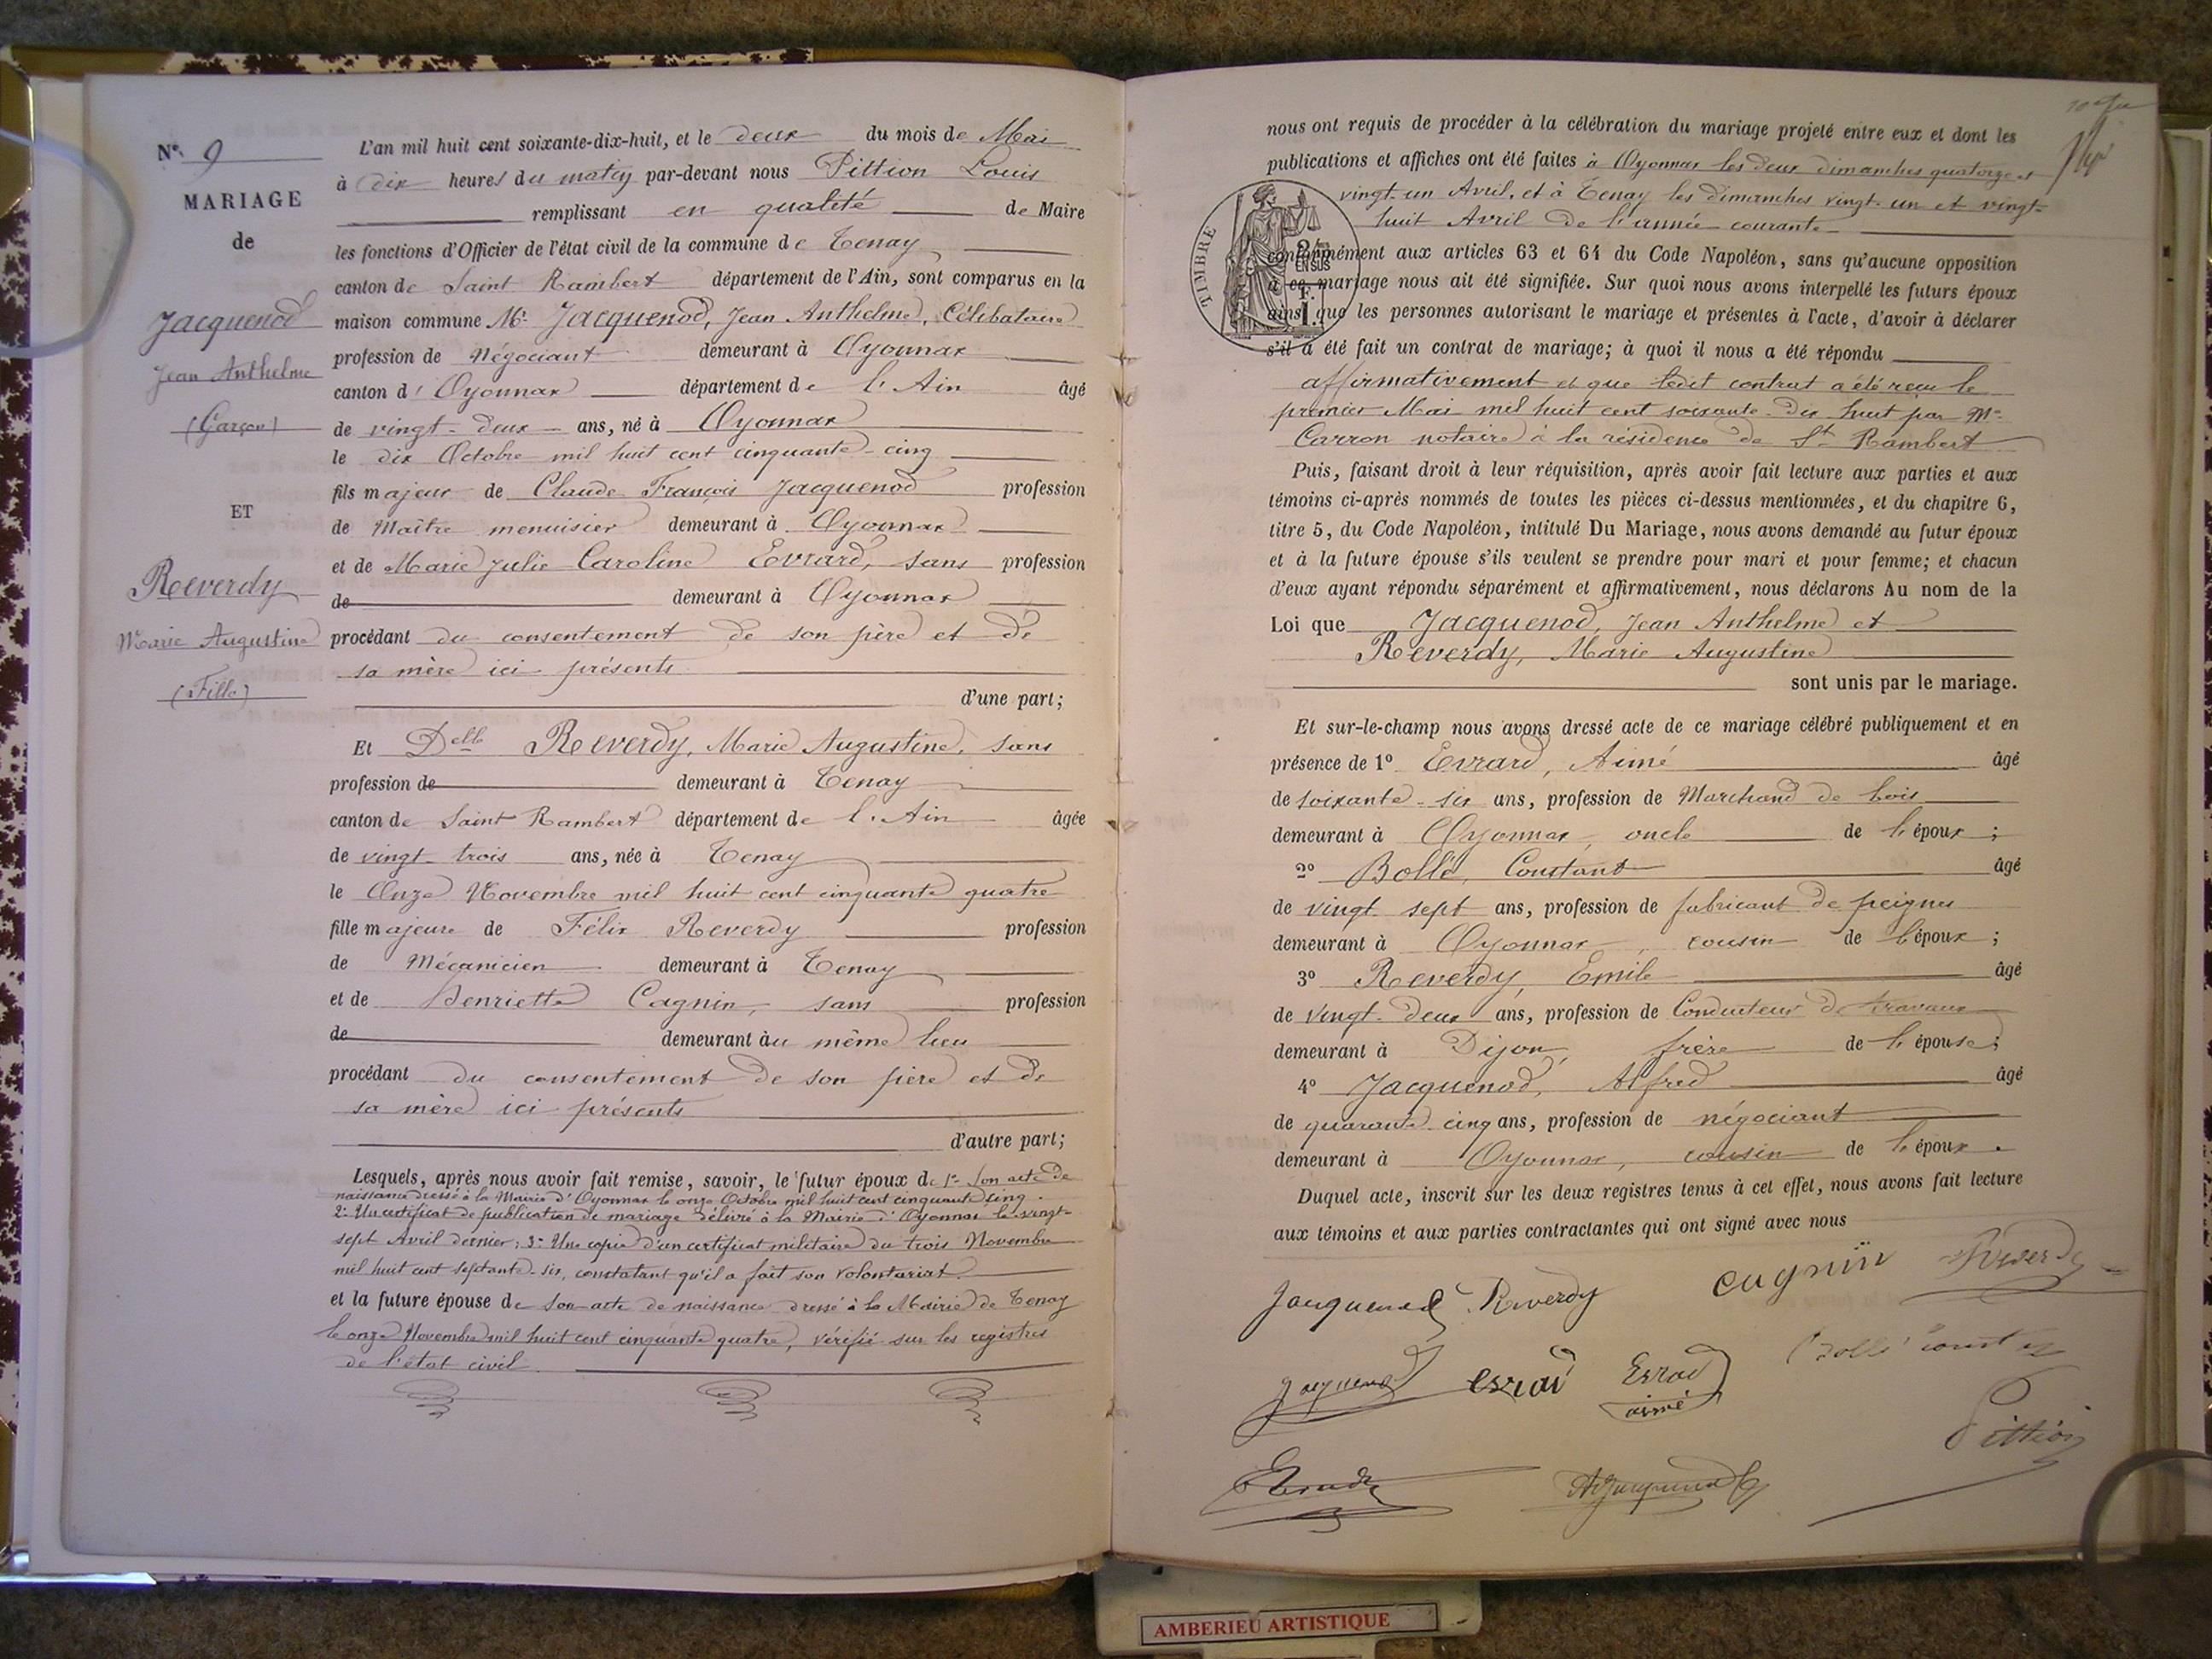 N° 9
MARIAGE
de
Jacquenod
Jean Anthelme
(Garçon)
ET
Reverdy
Marie Augustine
(Fille)
L'an mil huit cent soixante-dix-huit, et le deux du mois de Mai
à dix heures du matin par-devant nous Pittion Louis
remplissant en qualité de Maire
les fonctions d'Officier de l'état civil de la commune de Tenay
canton de Saint Rambert département de l'Ain, sont comparus en la
maison commune Mr Jacquenod, Jean Anthelme, Célibataire
profession de Négociant demeurant à Oyonnax
canton d'Oyonnax département de l'Ain âgé
de vingt-deux ans, né à Oyonnax
le dix Octobre mil huit cent cinquante-cinq
fils majeur de Claude François Jacquenod profession
de Maître menuisier demeurant à Oyonnax
et de Marie Julie Caroline Evrard, sans profession
de demeurant à Oyonnax
procédant du consentement de son père et de
sa mère ici présents
d'une part;
Et Delle Reverdy, Marie Augustine, sans
profession de demeurant à Tenay
canton de Saint Rambert département de l'Ain âgée
de vingt-trois ans, née à Tenay
le Onze Novembre mil huit cent cinquante quatre
fille majeure de Félix Reverdy profession
de Mécanicien demeurant à Tenay
et de Henriette Cagnin, sans profession
de demeurant au même lieu
procédant du consentement de son père et de
sa mère ici présents
d'autre part;
Lesquels, après nous avoir fait remise, savoir, le futur époux de 1° Son acte de
naissance dressé à la Mairie d'Oyonnax le onze Octobre mil huit cent cinquante cinq.
2° Un certificat de publication de mariage délivré à la Mairie d'Oyonnax le vingt-
sept Avril dernier; 3° Une copie d'un certificat militaire du trois Novembre
mil huit cent septante-six, constatant qu'il a fait son volontariat.
et la future épouse de Son acte de naissance dressé à la Mairie de Tenay
le onze Novembre mil huit cent cinquante quatre, vérifié sur les registres
de l'état civil
nous ont requis de procéder à la célébration du mariage projeté entre eux et dont les
publications et affiches ont été faites à Oyonnax les deux dimanches quatorze et
vingt-un Avril, et à Tenay les dimanches vingt-un et vingt-
huit Avril de l'année courante
TIMBRE
conformément aux articles 63 et 64 du Code Napoléon, sans qu'aucune opposition
à ce mariage nous ait été signifiée. Sur quoi nous avons interpellé les futurs époux
ainsi que les personnes autorisant le mariage et présentes à l'acte, d'avoir à déclarer
s'il a été fait un contrat de mariage; à quoi il nous a été répondu
affirmativement et que ledit contrat a été reçu le
premier Mai mil huit cent soixante-dix huit par Me
Carron notaire à la résidence de St Rambert
Puis, faisant droit à leur réquisition, après avoir fait lecture aux parties et aux
témoins ci-après nommés de toutes les pièces ci-dessus mentionnées, et du chapitre 6,
titre 5, du Code Napoléon, intitulé Du Mariage, nous avons demandé au futur époux
et à la future épouse s'ils veulent se prendre pour mari et pour femme; et chacun
d'eux ayant répondu séparément et affirmativement, nous déclarons Au nom de la
Loi que Jacquenod, Jean Anthelme et
Reverdy, Marie Augustine
sont unis par le mariage.
Et sur-le-champ nous avons dressé acte de ce mariage célébré publiquement et en
présence de 1° Evrard, Aimé âgé
de soixante-six ans, profession de Marchand de bois
demeurant à Oyonnax, oncle de l'époux;
2° Bollé, Constant âgé
de vingt sept ans, profession de fabricant de peignes
demeurant à Oyonnax, cousin de l'époux;
3° Reverdy, Emile âgé
de vingt-deux ans, profession de Conducteur de travaux
demeurant à Dijon, frère de l'épouse;
4° Jacquenod, Alfred âgé
de quarante-cinq ans, profession de négociant
demeurant à Oyonnax, cousin de l'époux.
Duquel acte, inscrit sur les deux registres tenus à cet effet, nous avons fait lecture
aux témoins et aux parties contractantes qui ont signé avec nous
Jacquenod Reverdy cagnin Reverdy
Jacquenod Evrard Evrard aimé Bollé Constant
Pittion
AJacquenod
AMBERIEU ARTISTIQUE